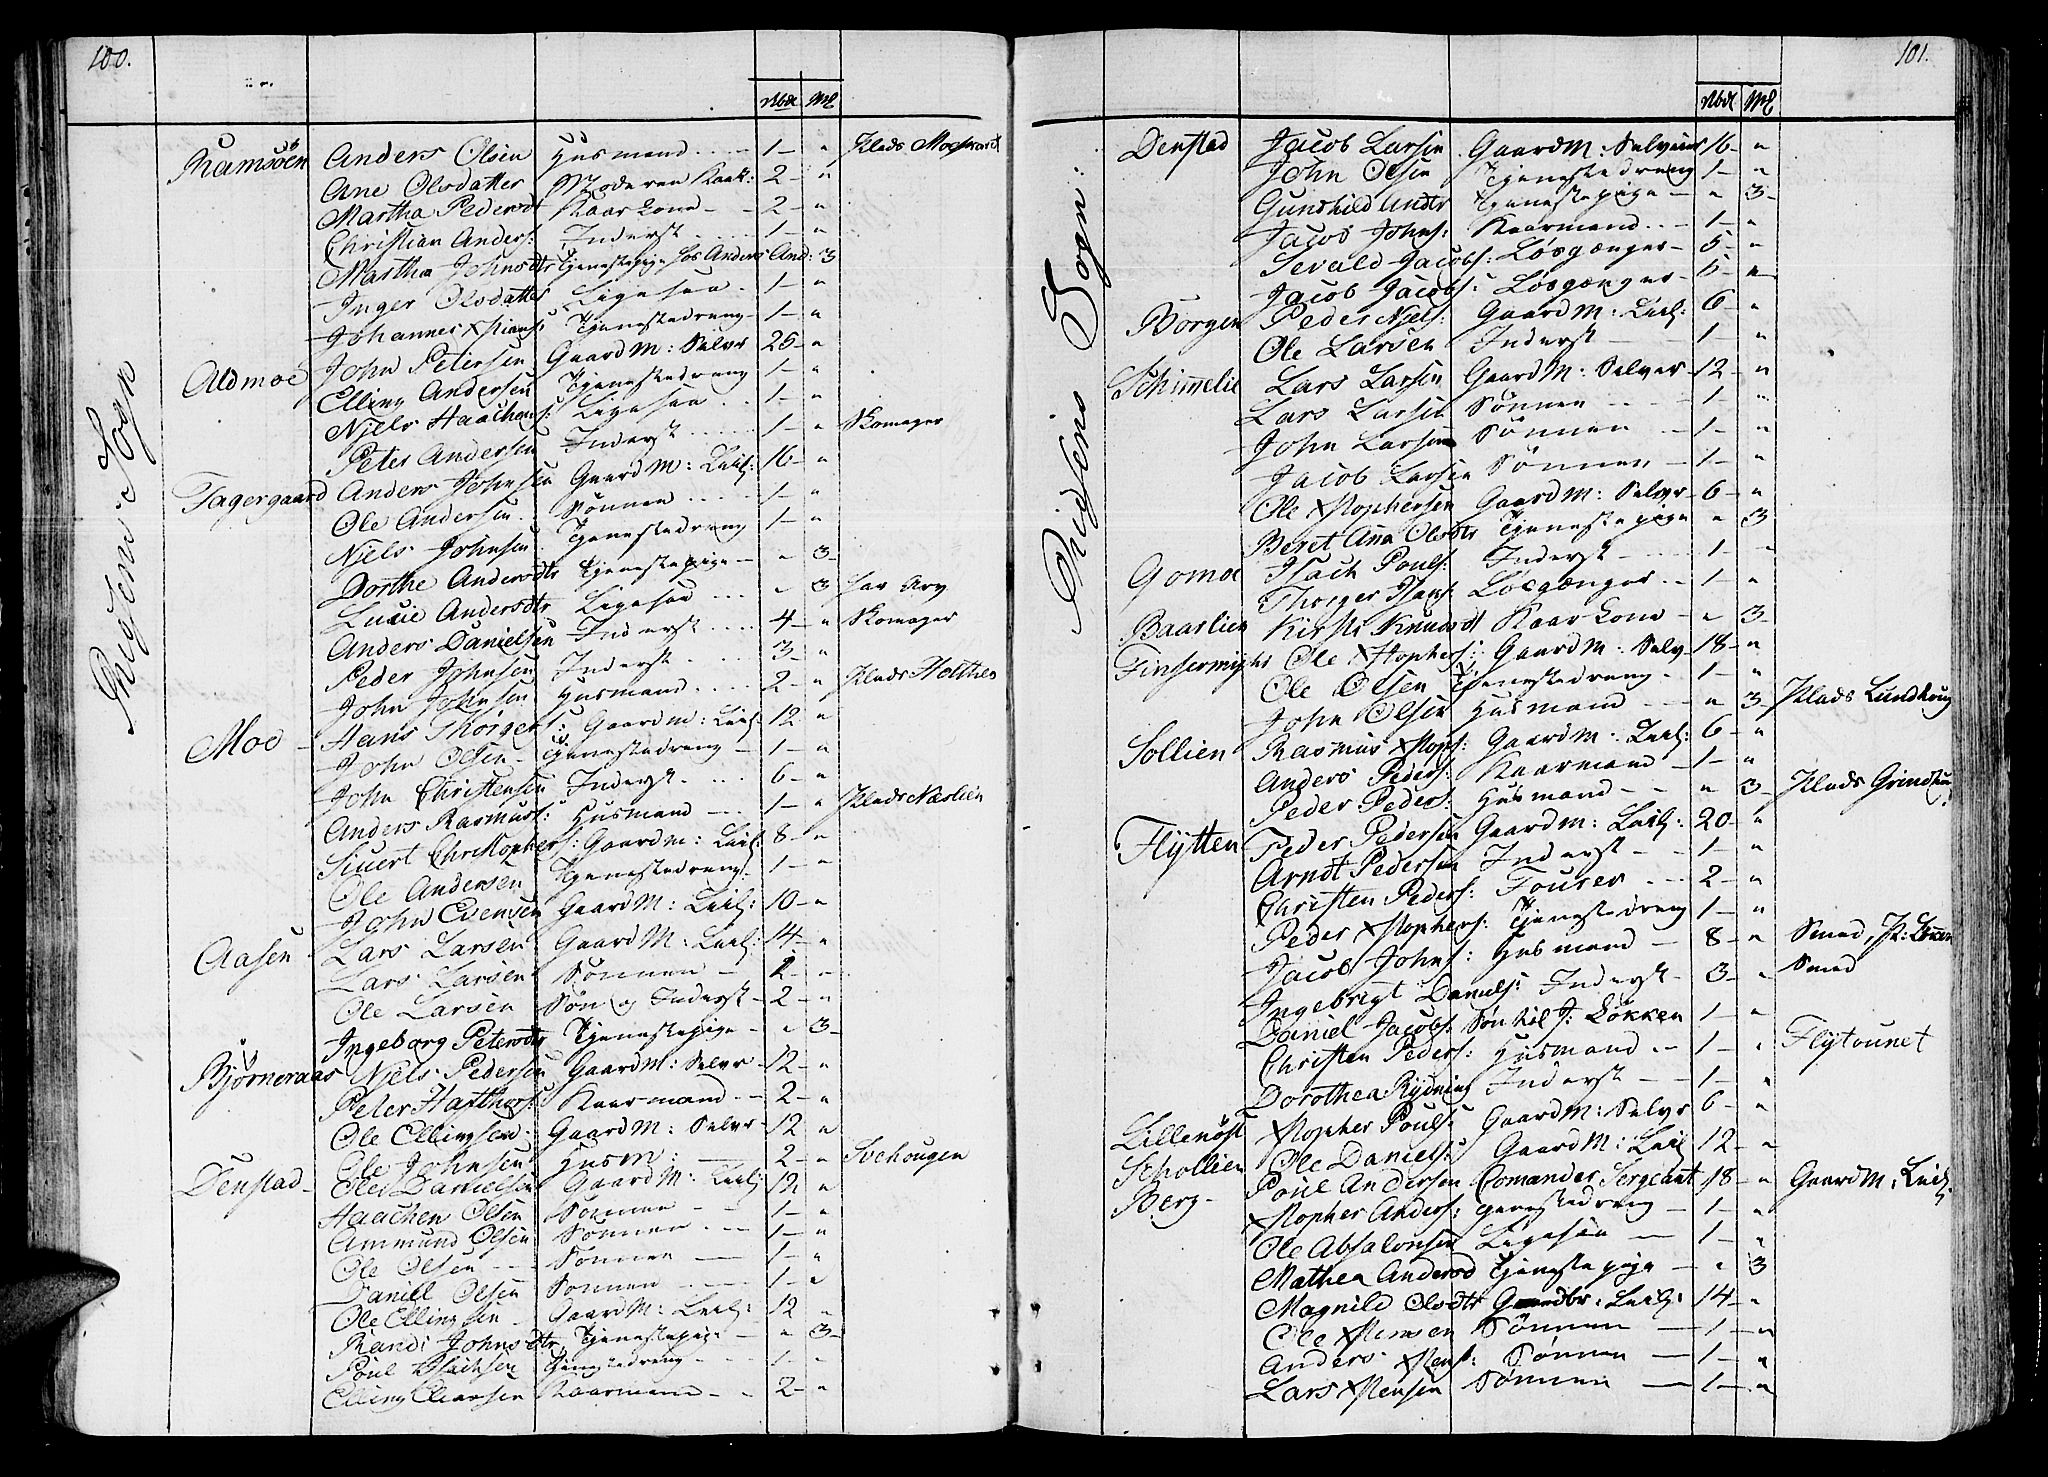 100.
Rbdl Mk
Ramsöen Anders Olsen Husmand 1 — "
Ane Olsdatter Moderen 2 — "
Martha Pedersdt Kaarkone 2 — "
Christian Anders: Inderst 1 — "
Martha Johnsdtr Tjenestepige hos Anders And: 3
Inger Olsdatter Ligesaa 1 — "
Johannes Xstians: Tjenestedreng 1 — "
Aldmoe John Petersen Gaardm: Selvr 26 — "
Elling Andersen Tjenestedreng 1 — "
Njels Haachens: Ligesaa 1 — "
Peter Andersen Inderst 1 — " Skomager
Fagergaard Anders Johnsen Gaardm: Leil: 16 — "
Ole Andersen Sönnen 1 — "
Njels Johnsen Tjenestedreng 1 — "
Dorthe Andersdtr Tjenestepige " 3
Lucie Andersdtr Ligesaa " 3 har Arv
Anders Danielsen Inderst 4 — " Skomager
Peder Johnsen Inderst 3 — "
John Johnsen Husmand 2 — " Plads Holthen
Moe Hans Thörgers: Gaardm: Leil: 12 — "
John Olsen Tjenestedreng 1 — "
John Christensen Inderst 6 — "
Anders Rasmus: Husmand 1 — " Plads Næslien
Siuert Christophers: Gaardm: Leil: 8 — "
Ole Andersen Tjenestedreng 1 — "
John Evensen Gaardm: Leil: 10 — "
Aasen Lars Larsen Gaardm: Leil: 14 — "
Lars Larsen Sönnen 2 — "
Ole Larsen Søn og Inderst 2 — "
Ingeborg Petersdtr Tjenestepige " 3
Bjørneraas Njels Pedersen Gaardm: Selvr 12 — "
Peter Hafthors: Kaarmand 2 — "
Ole Ellingsen Gaardm: Selvr 12 "
Ole Johnsen Husm: 2 — " Svehougen
Denstad Ole Danielsen Gaardm: Leil: 12 "
Haachen Olsen Sönnen 1 — "
Ammund Olsen Sönnen 1 — "
Ole Olsen Sönnen 1 — "
Daniel Olsen Sönnen 1 — "
Ole Ellingsen Gaardm: Leil: 12 "
Randi Johnsdtr Tjenestepige " 3
Poul Isachsen Tjenestedreng 1 — "
Elling Kaarmand 2 — "
Sogn
101.
Rbdl Mk
Sogn:
Denstad Jacob Larsen Gaardm: Selveier 16 "
John Olsen Tjenestedreng 1 — "
Gunhild Andtr Tjenestepige " 3
Jacob Johns: Kaarmand 1 — "
Sevald Jacobs: Løsgænger 5 — "
Jacob Jacobs: Løsgænger 5 — "
Borgen Peder Njels: Gaardm: Leil: 6 "
Ole Larsen Inderst 1 — "
Schimmelie Lars Larsen Gaardm: Selver 12 "
Lars Larsen Sönnen 1 — "
John Larsen Sönnen 1 — "
Jacob Larsen Sönnen 1 — "
Ole Xstophersen Gaardm: Selvr 6 — "
Beret Ana Olsdtr Tjenestepige " 3
Gomo Isach Pouls: Inderst 1 — "
Thorger Hans: Løsgænger 1 — "
Baarlien Kirsti Knudsd Kaarkone " 3
Ole Xstophers: Gaardm: Selv 18 "
Ole Olsen Tjenestedreng 1 — "
John Olsen Husmand " 3 Plads
Sollien Rasmus Xstops: Gaardm: Leil: 6 — "
Anders Peders: Kaarmand 1 — "
Peder Peders: Husmand " 3 Plads
Flytten Peder Pedersen Gaardm: Leil: 20 "
Arndt Pedersen Inderst 1 — "
Christen Peders: Fourer 2 — "
Peder Xstophers: Tjenestedreng 1 — "
Jacob Johns: Husmand 8 — " Smed, Pl: Løkken
Ingebrigt Daniels: Inderst 3 — " Smed
Daniel Jacobs: Søn til J: Løkken 1 — "
Christen Peders: Husmand 1 — " Flytounet
Dorothea Rydning Inderst 1 — "
Lillemöst Xstopher Pouls: Gaardm: Selvr 6 — "
Schollien Ole Daniels: Gaardm: Leil 12 — "
Berg Poul Andersen Comander Sergeant 18 — " Gaardm: Leil:
Xstopher Anders: Tjenestedreng 1 — "
Ole Absalonsen Ligesaa 1 — "
Mathea Andersd Tjenestepige " 3
Magnild Olsdtr Leil: 14 — "
Ole Xstensen Sönnen 1 — "
Anders Xstens: Sönnen 1 — "
Lars Xstensen Sönnen 1 — "